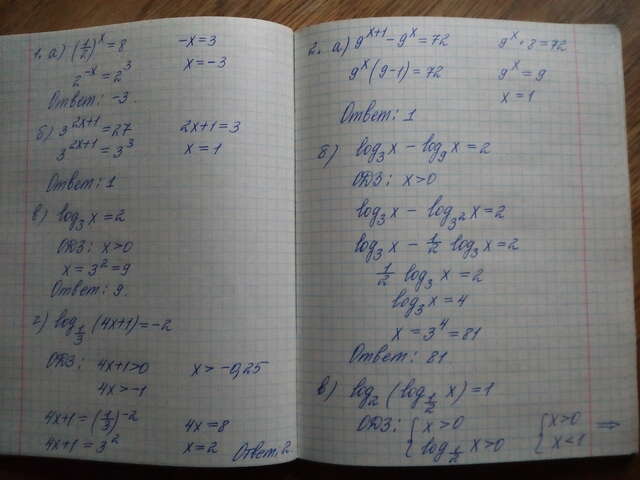 1. а) (1/2)^x = 8 -x = 3
2^-x = 2^3 x = -3
Ответ: -3.
б) 3^2x+1 = 27 2x+1 = 3
3^2x+1 = 3^3 x = 1
Ответ: 1
в) log_3 x = 2
ОДЗ: x>0
x = 3^2 = 9
Ответ: 9.
г) log_1/3 (4x+1) = -2
ОДЗ: 4x+1>0 x > -0,25
4x > -1
4x+1 = (1/3)^-2 4x = 8
4x+1 = 3^2 x = 2 Ответ: 2.
2. а) 9^x+1 - 9^x = 72 9^x · 8 = 72
9^x (9-1) = 72 9^x = 9
x = 1
Ответ: 1
б) log_3 x - log_9 x = 2
ОДЗ: x>0
log_3 x - log_3^2 x = 2
log_3 x - 1/2 log_3 x = 2
1/2 log_3 x = 2
log_3 x = 4
x = 3^4 = 81
Ответ: 81
в) log_2 (log_1/2 x) = 1
ОДЗ: { x>0 { x>0 ⇒
log_1/2 x > 0 x < 1